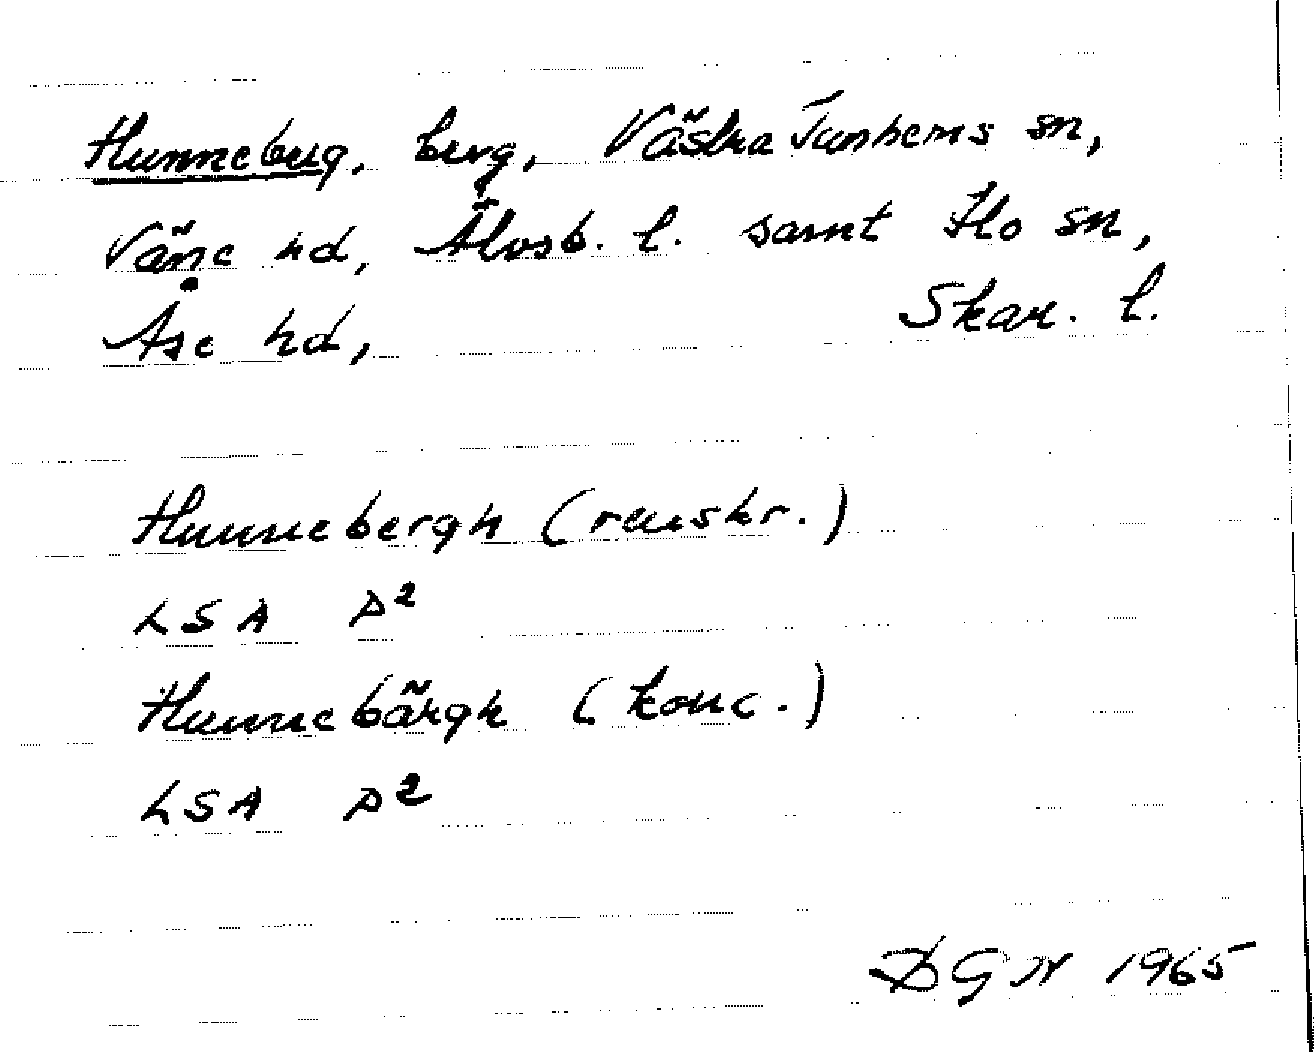 Hunneberg, berg, Västra Tunhems sn,
Väne hd, Älvsb. l. samt Flo sn,
Åse hd, Skar. l.
Hunnebergh (renskr.)
LSA P²
Hunnebärgh (konc.)
LSA P²
DGN 1965